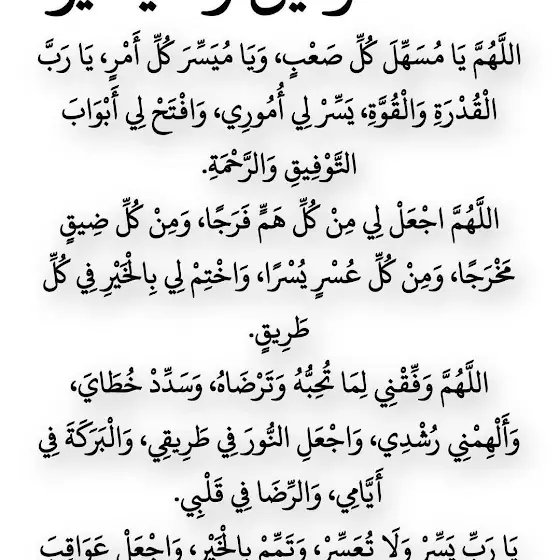 اللَّهُمَّ يَا مُسَهِّلَ كُلِّ صَعْبٍ، وَيَا مُيَسِّرَ كُلِّ أَمْرٍ، يَا رَبَّ
الْقُدْرَةِ وَالْقُوَّةِ، يَسِّرْ لِي أُمُورِي، وَافْتَحْ لِي أَبْوَابَ
التَّوْفِيقِ وَالرَّحْمَةِ.
اللَّهُمَّ اجْعَلْ لِي مِنْ كُلِّ هَمٍّ فَرَجًا، وَمِنْ كُلِّ ضِيقٍ
مَخْرَجًا، وَمِنْ كُلِّ عُسْرٍ يُسْرًا، وَاخْتِمْ لِي بِالْخَيْرِ فِي كُلِّ
طَرِيقٍ.
اللَّهُمَّ وَفِّقْنِي لِمَا تُحِبُّهُ وَتَرْضَاهُ، وَسَدِّدْ خُطَايَ،
وَأَلْهِمْنِي رُشْدِي، وَاجْعَلِ النُّورَ فِي طَرِيقِي، وَالْبَرَكَةَ فِي
أَيَّامِي، وَالرِّضَا فِي قَلْبِي.
يَا رَبِّ يَسِّرْ وَلَا تُعَسِّرْ، وَتَمِّمْ بِالْخَيْرِ، وَاجْعَلْ عَوَاقِبَ